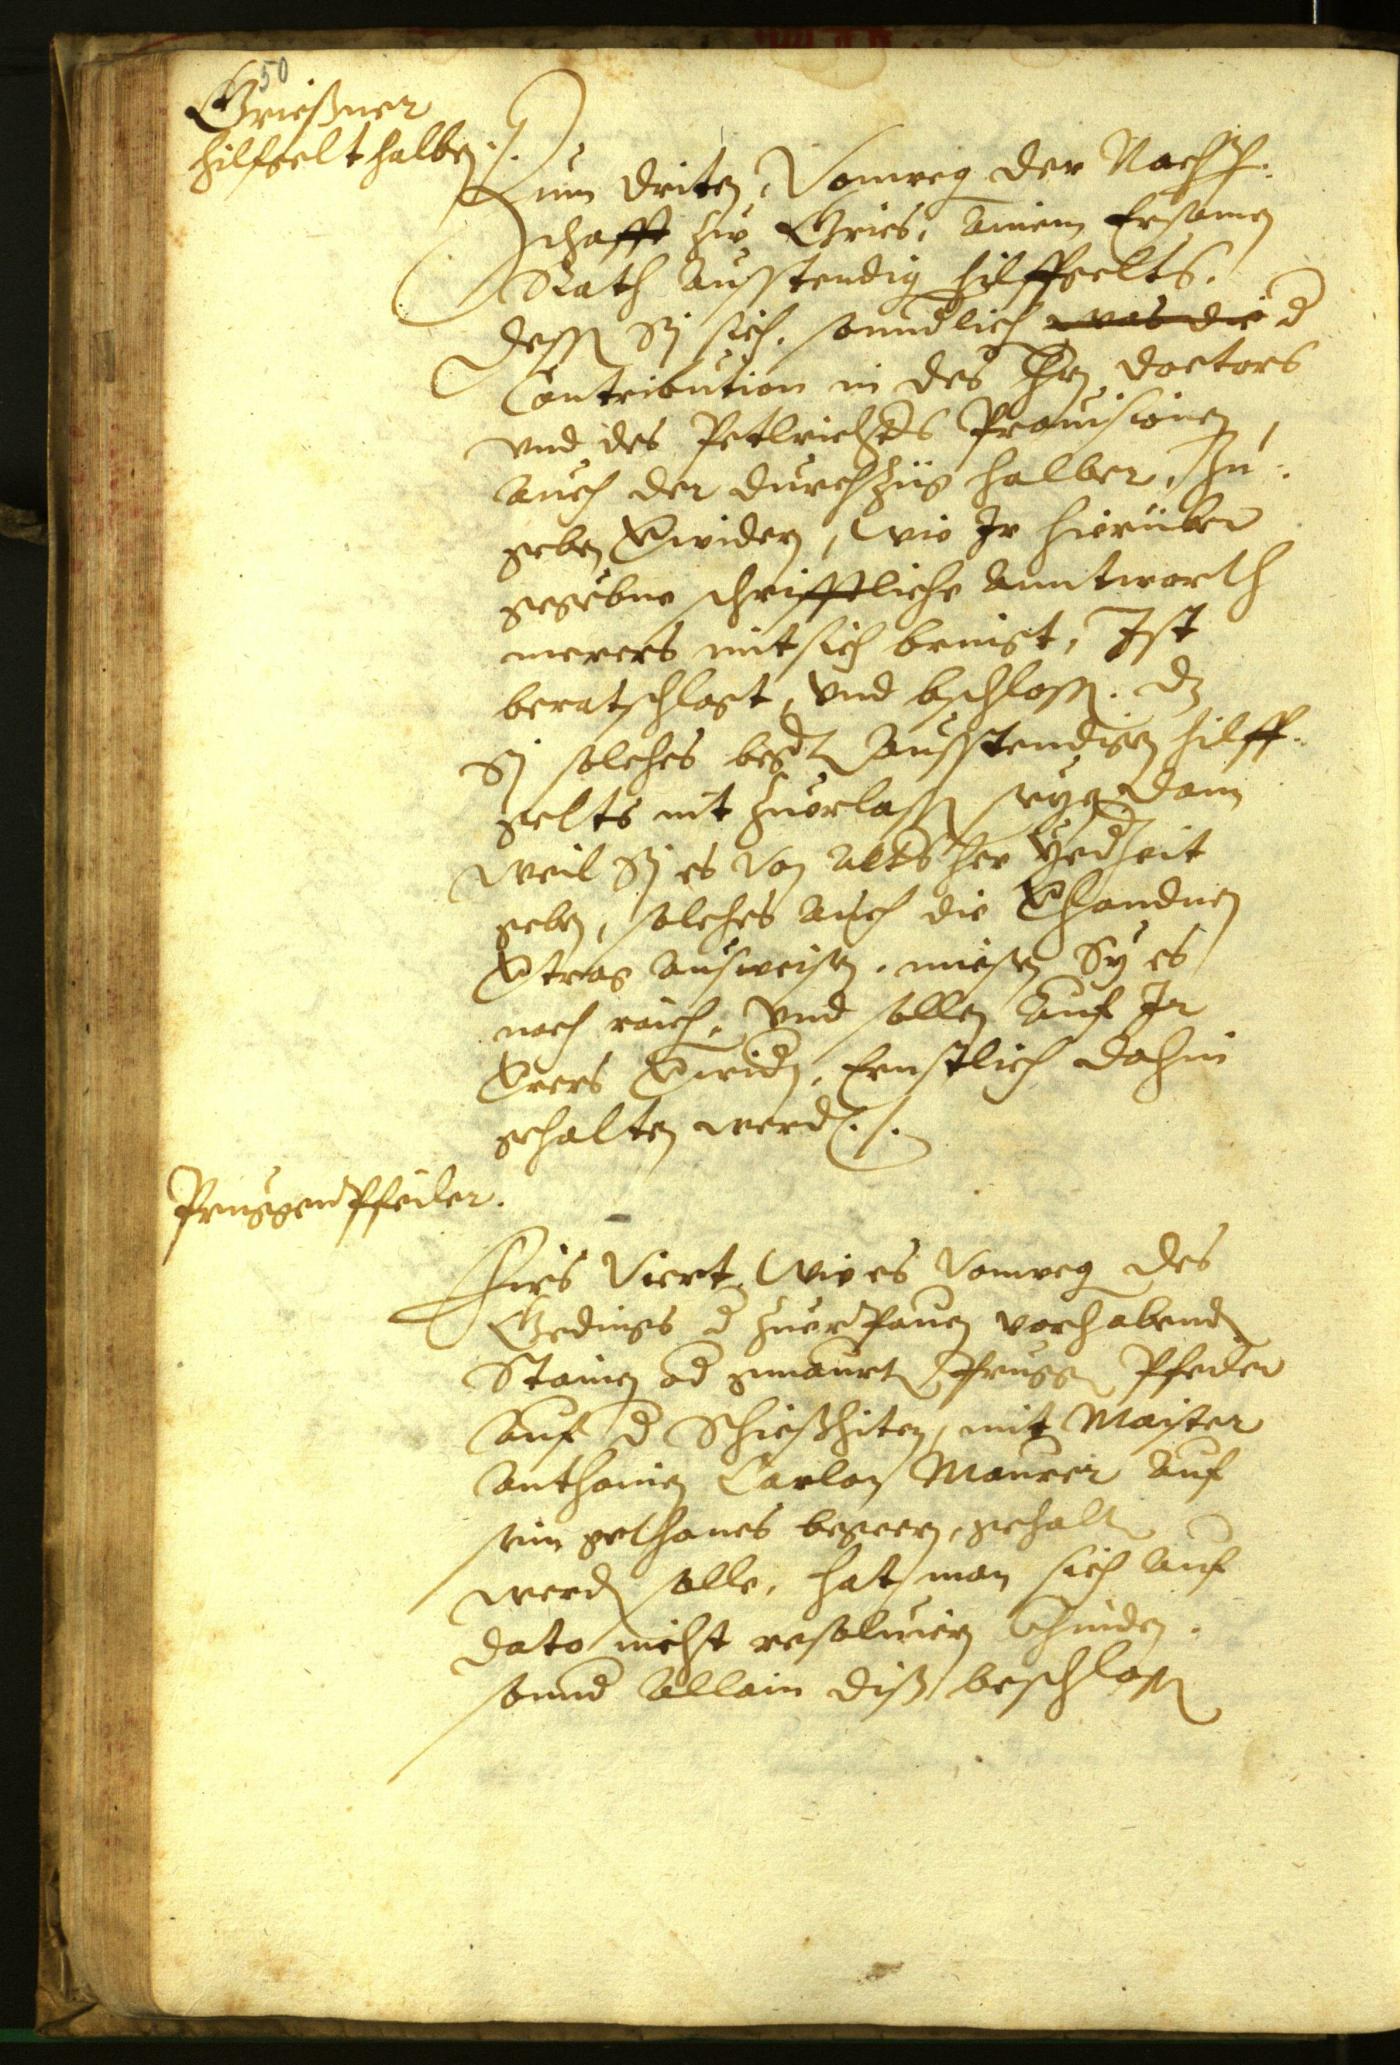 50
Grießner
hilfgelt halben ./.
Zum driten, Vonweg der Nachp:
schafft zu Gries, ainem Ersamen
Rath Ausstendig hilffgelts.
dessen Sy sich, sonnderlich was die d
Contribution in des Hrn doctors
vnd des Petlrichters Prouisionen,
auch der durchzüg halber, Zu:
geben verwidern, wie Ir hierüber
gegebne schrifftliche Anntworth
merers mit sich bringt, Ist
beratschlagt, vnd bschlossen. dz
Sy solches begert Ausstendigen hilff:
gelts nit zuerlassen seyen dann
weil Sy es von alters her yederzeit
geben, solches auch die verhandnen
verträg ausweisen. miesen Sy es
noch raichen, vnd sollen auf Ir
verers verwidern, Ernstlich dahin
gehalten werden ./.
Pruggen Pfeiler.
Fürs Viert, Wie es vonweg des
Gedings d zuerpauen vorhabenden
Stainen od gmaurten Pruggen Pfeiler
auf d Schießhiten, mit Maister
Anthonien Carlon Maurer auf
sein gethanes begeren, gehalten
werden solle, hat man sich auf
dato nicht resoluiern khinden.
sonnd allain diß beschlossen